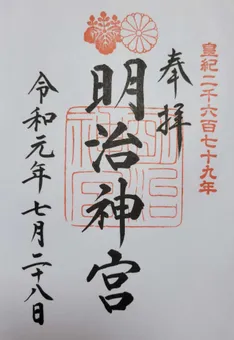 皇紀二千六百七十九年
奉拝
明治神宮
令和元年七月二十八日
明治神宮